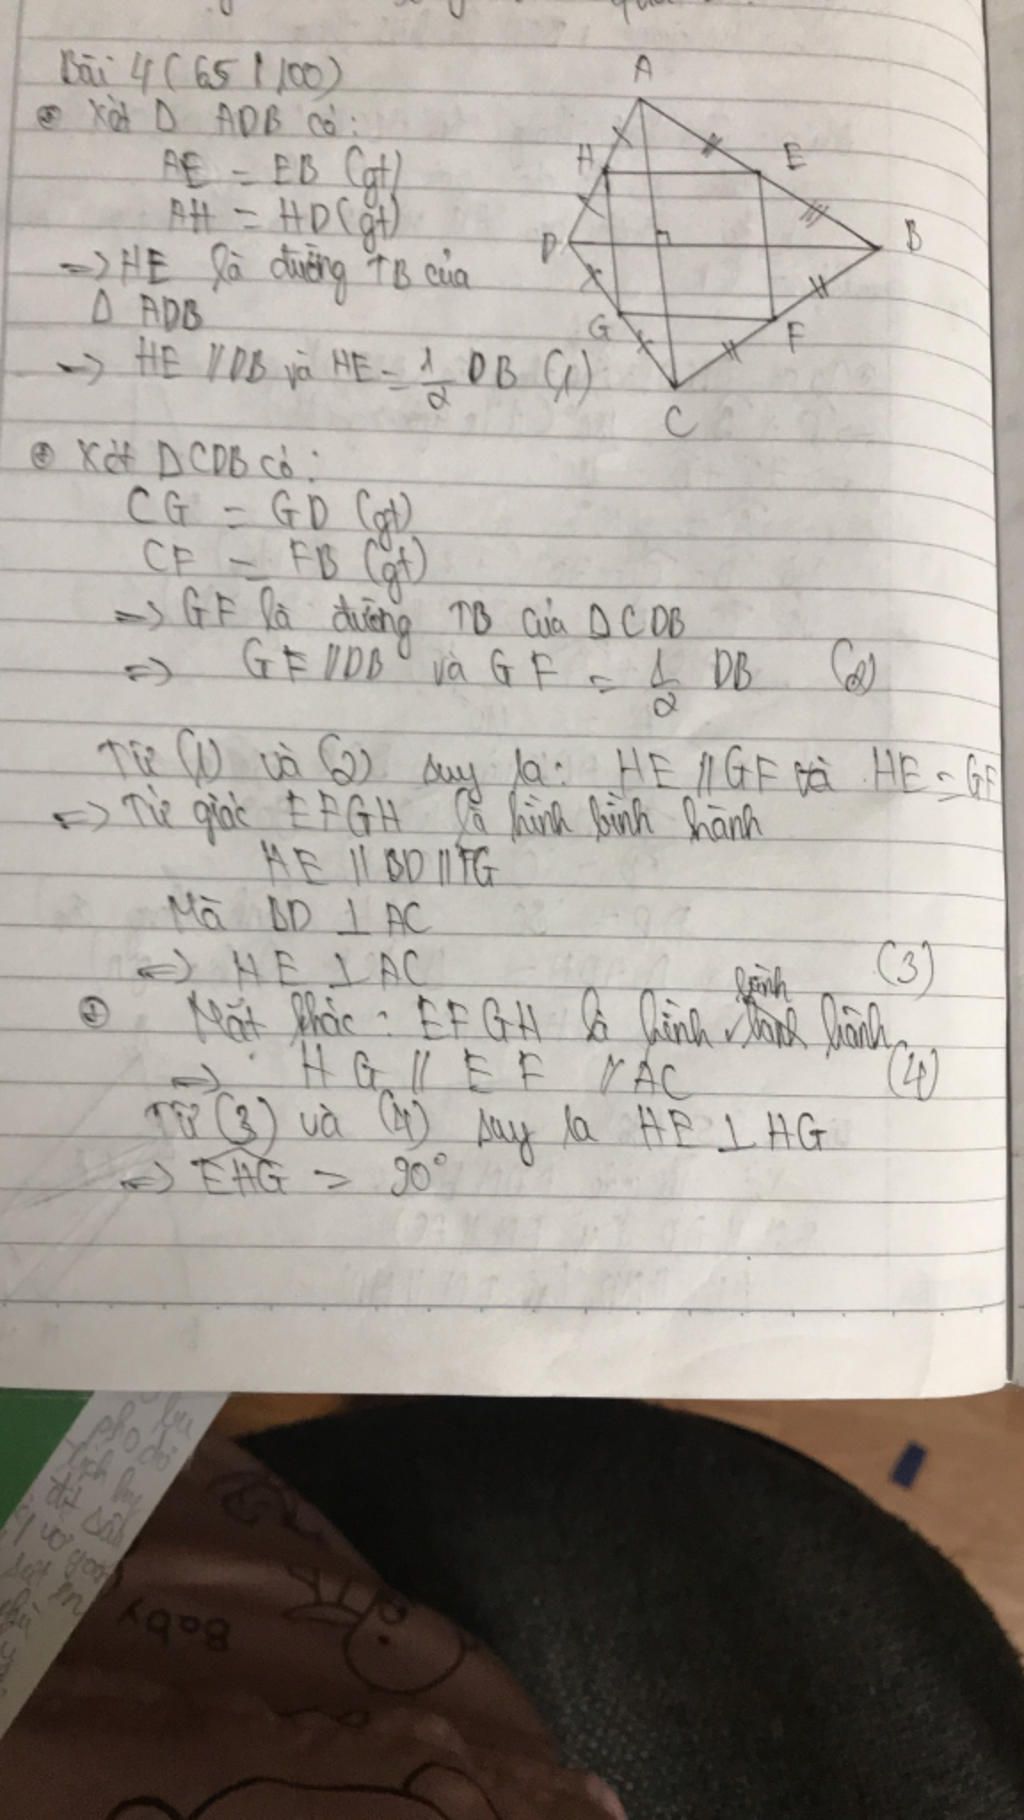 Bài 4 (65 / 100)
Xét Δ ADB có:
AE = EB (gt)
AH = HD (gt)
=> HE là đường TB của
Δ ADB
=> HE // DB và HE = 1/2 DB (1)
A
H
E
D
B
G
F
C
Xét Δ CDB có:
CG = GD (gt)
CF = FB (gt)
=> GF là đường TB của Δ CDB
=> GF // DB và GF = 1/2 DB (2)
Từ (1) và (2) suy ra: HE // GF và HE = GF
=> Tứ giác EFGH là hình bình hành
HE // BD // FG
Mà BD ⊥ AC
=> HE ⊥ AC (3)
Mặt khác: EFGH là hình bình hành
=> HG // EF // AC (4)
Từ (3) và (4) suy ra HE ⊥ HG
=> EHG = 90°
Baby